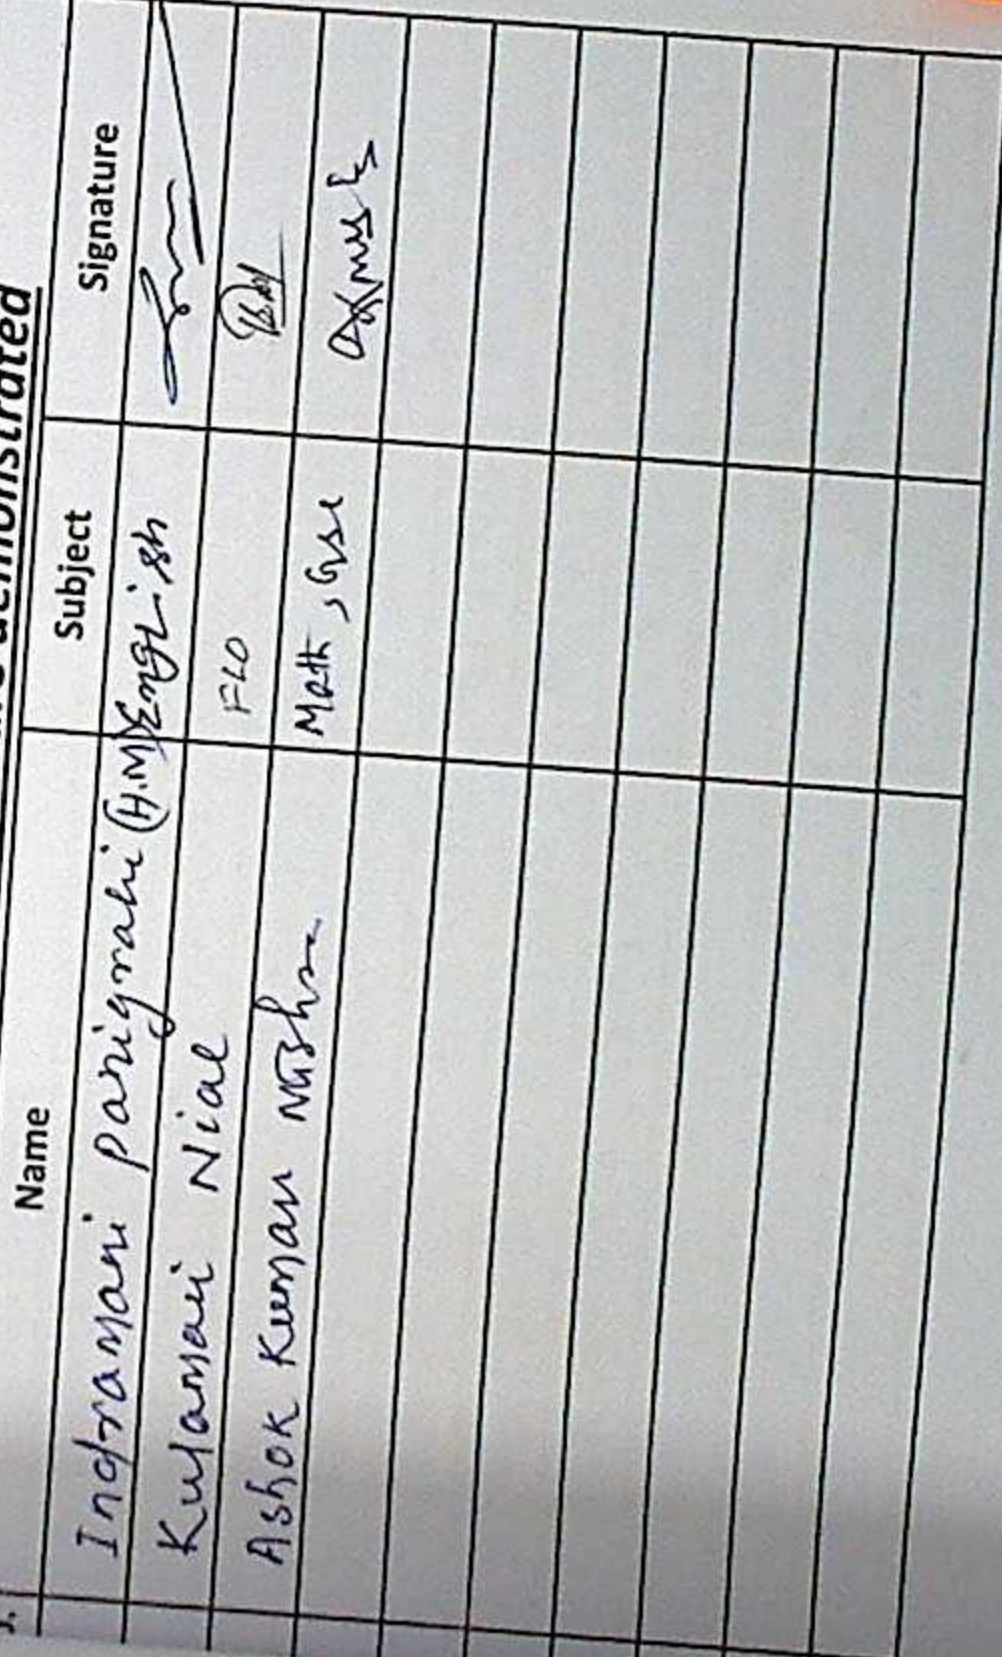 demonstrated
Name Subject Signature
Indramani Panigrahi (H.M) English
Kulamani Nial FLO
Ashok Kumar Mishra Math,